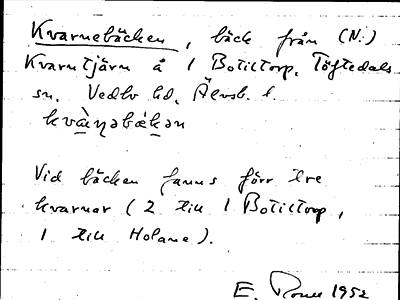 Kvarnebäcken, bäck från (N.)
Kvarntjärn å 1 Botiltorp, Töftedals
sn. Vedbo hd. Älvsb. l.
kvà̱ṇəbæ̀kən
Vid bäcken fanns förr tre
kvarnar (2 till 1 Botiltorp,
1 till Holane).
E. 1952